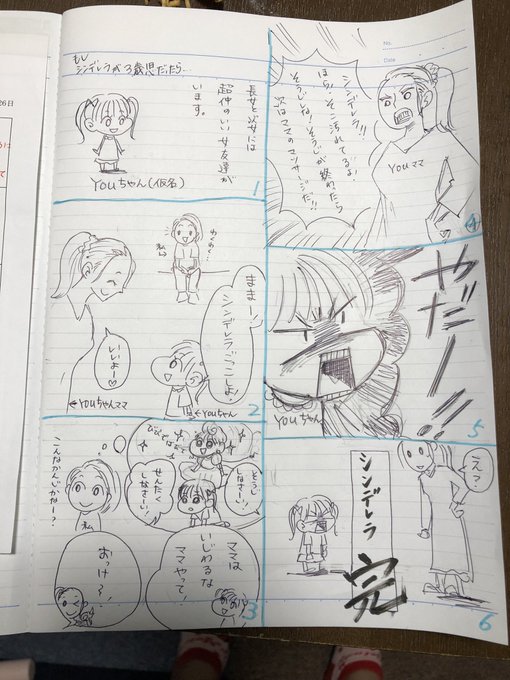 もし
シンデレラが3歳児だったら…
長女と次女には
超仲のいい女友達が
います。
Youちゃん(仮名)
1
わくわく…
私→
ままー!
シンデレラごっこしよ!
いいよー♡
←Youちゃんママ
←Youちゃん
2
こんなかんじかなー?
私
そうじ
しなさーい!
せんたく
しなさーい!
ママは
いじわるな
ママやって!
おっけー!
3
No.
Date
シンデレラ!!
ほら、そこ汚れてるよ!
そうじしな!そうじが終わったら
次はママのマッサージだ!!
Youママ
4
やだー!!
Youちゃん
5
え?
シンデレラ
完
6
26日